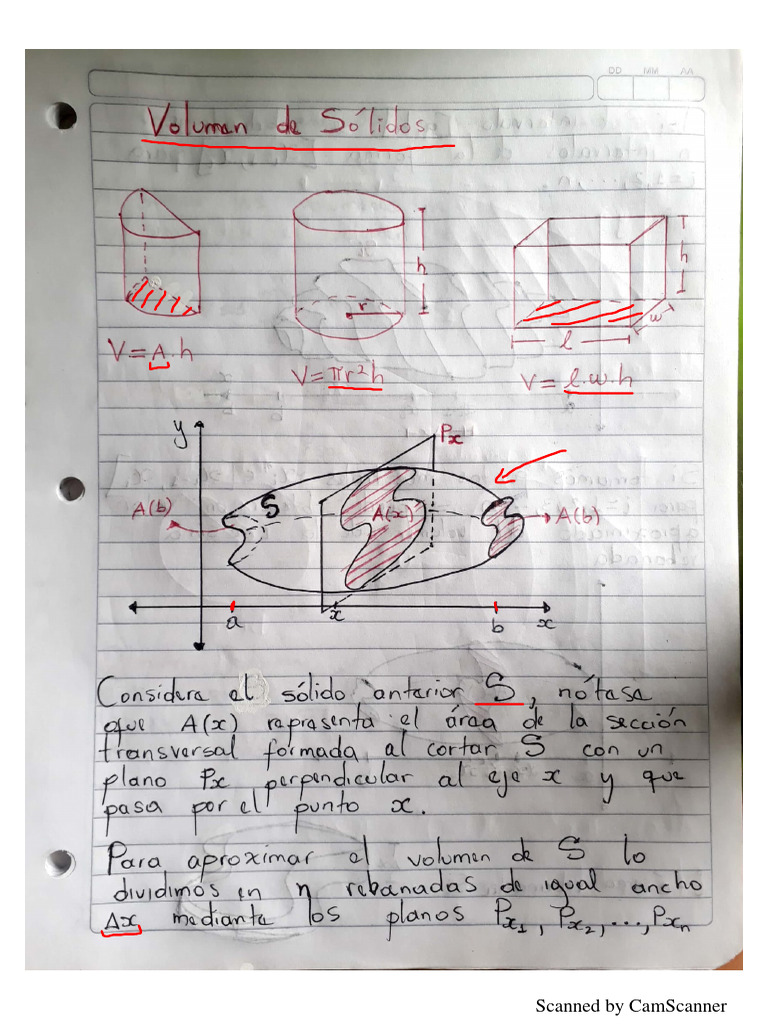 DD MM AA
Volumen de Sólidos
h
r
h
w
l
V=A.h
V=πr²h
V= l.w.h
y
Px
S
A(b)
A(x)
A(b)
a
x
b
x
Considera el sólido anterior S, nótase
que A(x) representa el área de la sección
transversal formada al cortar S con un
plano Px perpendicular al eje x y que
pasa por el punto x.
Para aproximar el volumen de S lo
dividimos en n rebanadas de igual ancho
Δx mediante los planos Px₁, Px₂, ..., Pxn
Scanned by CamScanner